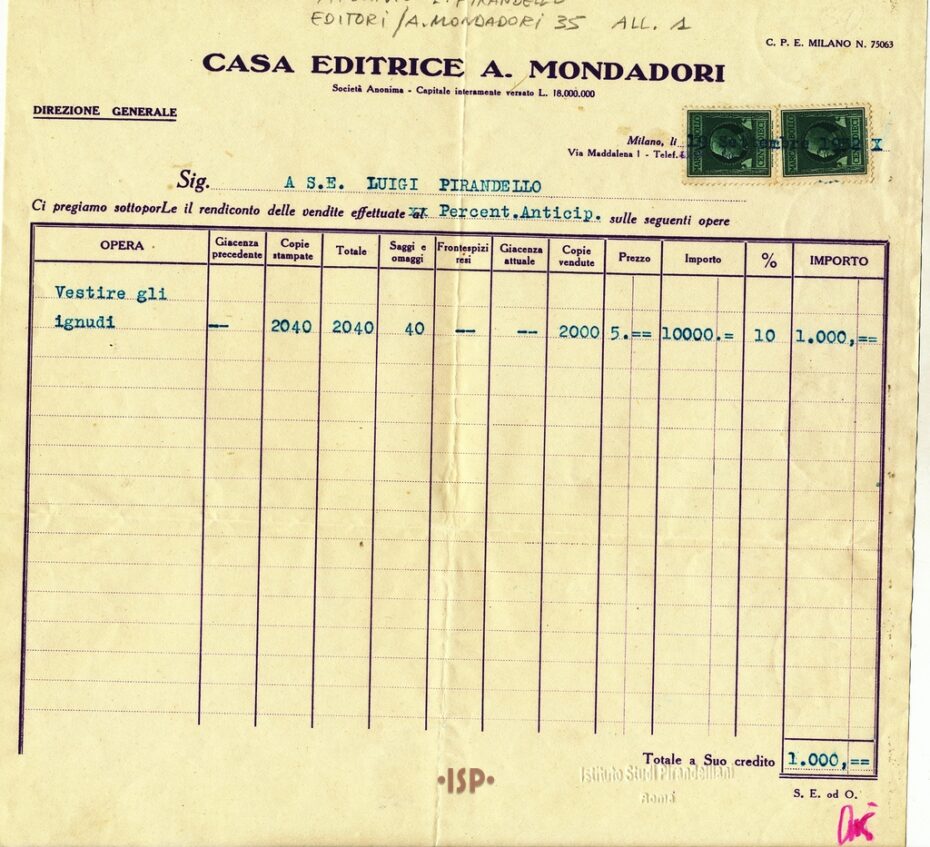 ARCHIVIO L. PIRANDELLO
EDITORI / A. MONDADORI 35 ALL. 1
C. P. E. MILANO N. 75063
CASA EDITRICE A. MONDADORI
Società Anonima - Capitale interamente versato L. 18.000.000
DIREZIONE GENERALE
Milano, li 1932 X
Via Maddalena 1 - Telef.
MARCA DA BOLLO CENT. DIECI
MARCA DA BOLLO CENT. DIECI
Sig. A S.E. LUIGI PIRANDELLO
Ci pregiamo sottoporLe il rendiconto delle vendite effettuate al Percent.Anticip. sulle seguenti opere
OPERA Giacenza precedente Copie stampate Totale Saggi e omaggi Frontespizi resi Giacenza attuale Copie vendute Prezzo Importo % IMPORTO
Vestire gli
ignudi -- 2040 2040 40 -- -- 2000 5.== 10000.= 10 1.000,==
Totale a Suo credito 1.000,==
·ISP·
Istituto Studi Pirandelliani
Roma
S. E. od O.